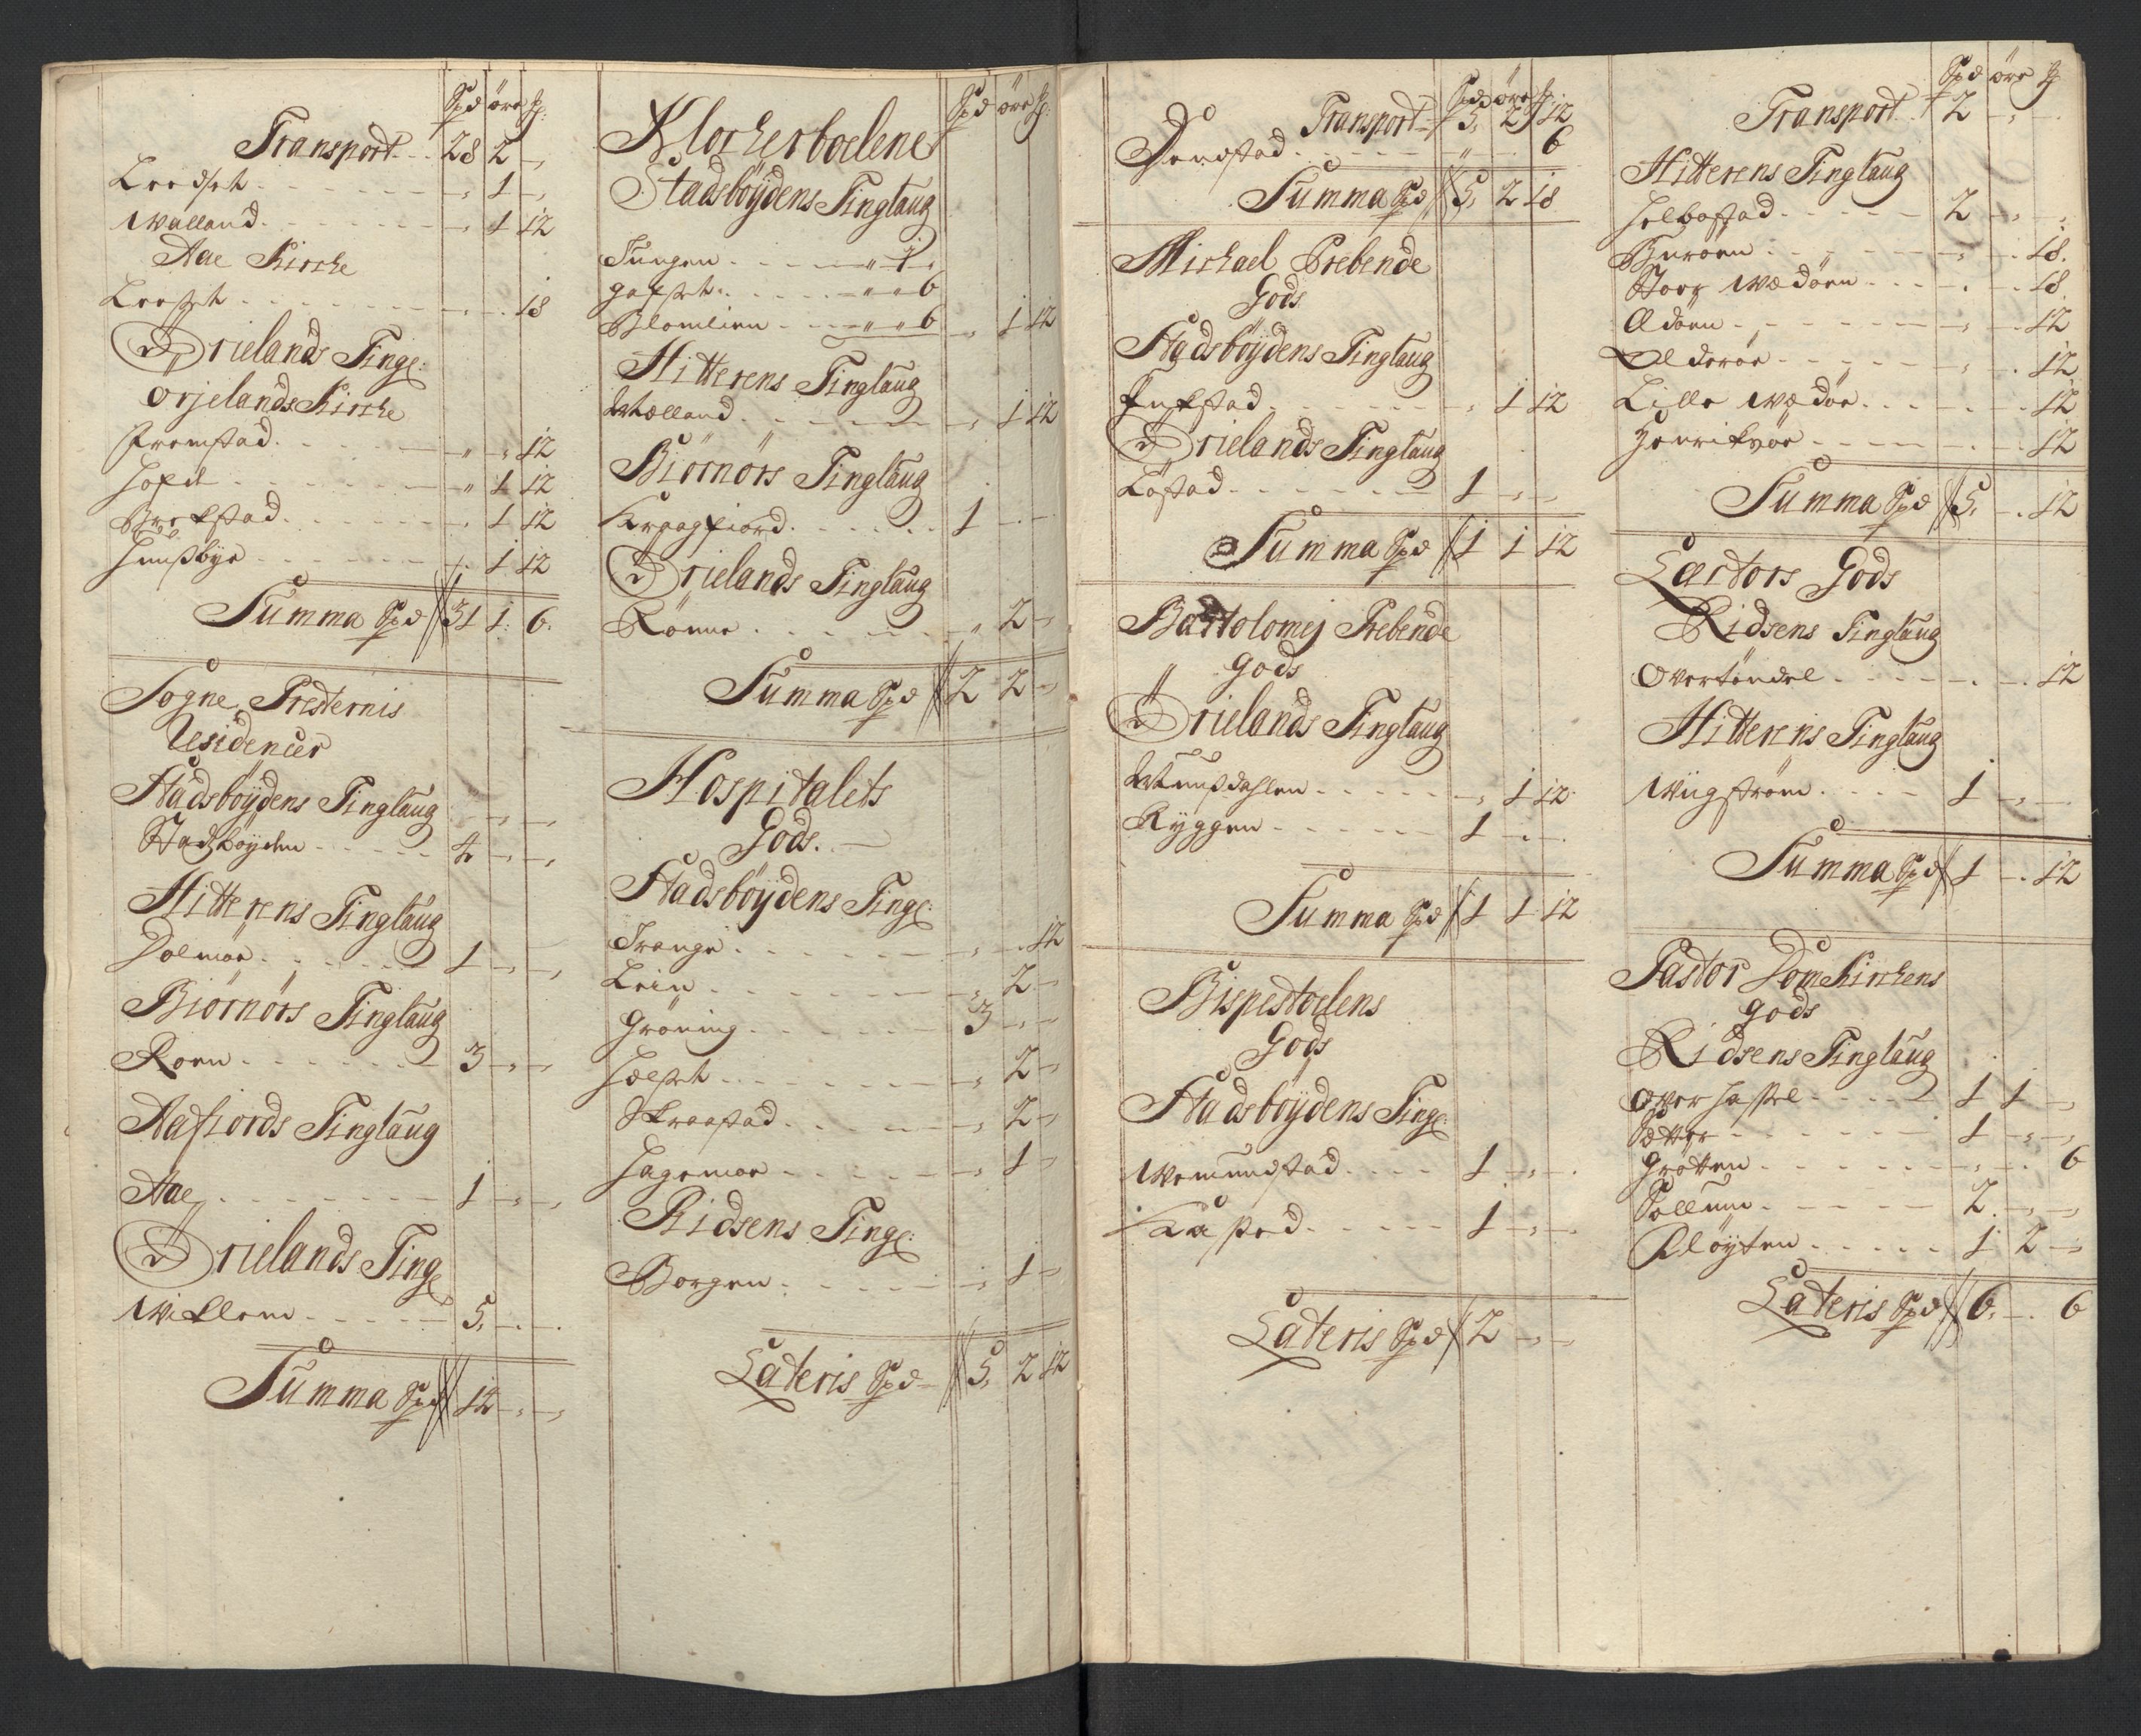 Spd öre ꝟ:
Transport. . 28 2 -
Leedset - - - 1 -
Walland. - - - 1 12
Aae Kirche
Leeset - - - 18
Ørielands Tingl:
Ørjelands Kirche
Fremstad. - - " - 12
Hofde - - - " 1 12
Brekstad. - - - 1 12
Hussbye - - - 1 12
Summa Spd 31 1. 6.
Sogne Presternis
Residencer
Stadsböydens Tinglaug
Stadsböyden - - - 4 - -
Hitterens Tinglaug
Dolmoe. - - - 1 - -
Biörnörs Tinglaug
Roen - - - 3 - -
Aafiords Tinglaug
Aae - - - 1 - -
Ørielands Tingl
Wicklem - - - 5. - -
Summa Spd 14 - -
Spd öre
Klockerboelene
Stadsböydens Tinglaug
Tungen - - - " 1 -
Gafset. - - - " " 6
Blomlien - - - " " 6 - 1 12
Hitterens Tinglaug
Wælland - - - 1 12
Biörnörs Tinglaug
Kraagfiord. - - - 1 - -
Ørielands Tinglaug
Rönne - - - " 2 -
Summa Spd 2 2 -
Hospitalets
Gods. -
Stadsböydens Tingl:
Trange - - - 12
Lein - - - 2 -
Gröning - - - 3 - -
Hælset - - - 2 -
Skraastad. - - - 2 -
Hagemoe - - - 1 -
Ridsens Tingl:
Borgen - - - 1 -
Lateris Spd 5. 2 12
Spd öre
Transport 5. 2 12
Denstad. - - - " 6
Summa Spd 5. 2 18
Michael Prebende
Gods
Stadsböydens Tinglaug
Fuxstad - - - 1 12
Ørielands Tinglaug
Löstad - - - 1 - -
Summa Spd 1 1 12
Bartolomej Prebende
Gods
Ørielands Tinglaug
Wussdahlen - - - 1 12
Ryggen - - - 1 - -
Summa Spd 1 1 12
Bispestoelens
Gods
Stadsböydens Tingl:
Wemundstad. - - 1 - -
Kaasted - - - 1 - -
Lateris Spd 2 - -
Spd öre
Transport 2 - -
Hitterens Tinglaug
Helbostad - - - 2 - -
Buröen - - - 18.
Store Wedöen - - - 18
Ædöen - - - 12
Olderöe - - - 12
Lille Wedöe - - - 12
Henrikvöe - - - 12
Summa Spd 5. - 12
Lectors Gods
Ridsens Tinglaug
Overtöndel - - - 12
Hitterens Tinglaug
Wiigström - - 1 - -
Summa Spd 1 - 12
Pastor DomKirkens
Gods
Ridsens Tinglaug
Over Hassel - - - 1 1 -
Sætter - - - 1 - -
Grötten - - - 6
Sollum - - - 2. - -
Kløyten - - - 1 2 -
Lateris Spd 6. - 6